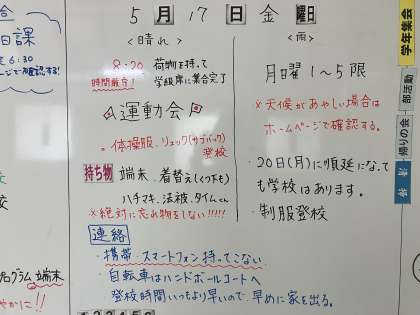 5 月 17 日 金 曜日
<晴れ>
8:20 荷物を持って
時間厳守! 学級席に集合完了
運動会
・体操服、リュック(サブバック)
登校
持ち物 端末、着替え(くつ下も)
ハチマキ、法被、タイムくん
※絶対に忘れ物をしない!!!!!
<雨>
月曜1〜5限
※天候があやしい場合は
ホームページで確認する。
・20日(月)に順延になって
も学校はあります。
・制服登校
連絡
・携帯、スマートフォン持ってこない
・自転車はハンドボールコートへ
・登校時間いつもより早いので、早めに家を出る。
合
日課
6:30
ページで確認する!
プログラム、端末
やかに!!
学年集会
部活動
帰りの会